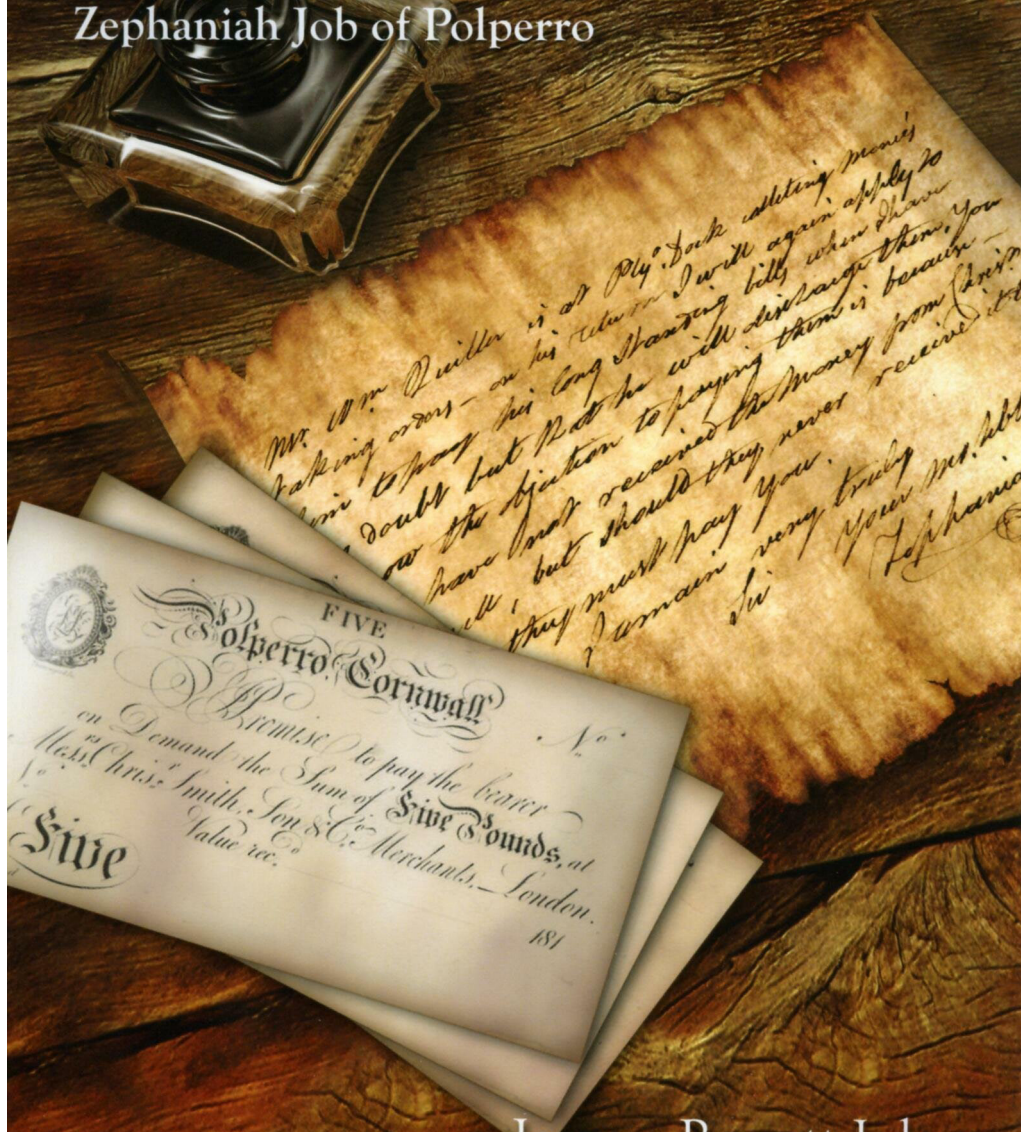 Zephaniah Job of Polperro
Mr. Wm Quiller is at Plyo. Dock collecting monies
taking orders – on his return I will again apply to
him to pay his long standing bills when I have
doubt but that he will discharge them. You
the objection to paying them is because –
have not received the Money from Christ
but should they never received it
they must pay you.
I remain very truly
Sir
Your Mo. 
Zephania
FIVE
Polperro, Cornwall
No.
I Promise to pay the bearer
on Demand the Sum of Five Pounds, at
Messrs. Chrisr. Smith, Son & Co. Merchants, London.
Value rec.
181
Five